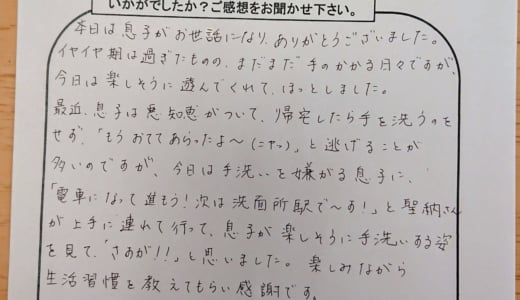 いかがでしたか？ご感想をお聞かせ下さい。
本日は息子がお世話になり、ありがとうございました。
イヤイヤ期は過ぎたものの、まだまだ手のかかる日々ですが、
今日は楽しそうに遊んでくれて、ほっとしました。
最近、息子は悪知恵がついて、帰宅したら手を洗うのを
せず、「もうおててあらったよ〜(ニヤッ)」と逃げることが
多いのですが、今日は手洗いを嫌がる息子に、
「電車になって進もう！次は洗面所駅で〜す！」と聖納さん
が上手に連れて行って、息子が楽しそうに手洗いする姿
を見て、「さすが！！」と思いました。楽しみながら
生活習慣を教えてもらい感謝です。